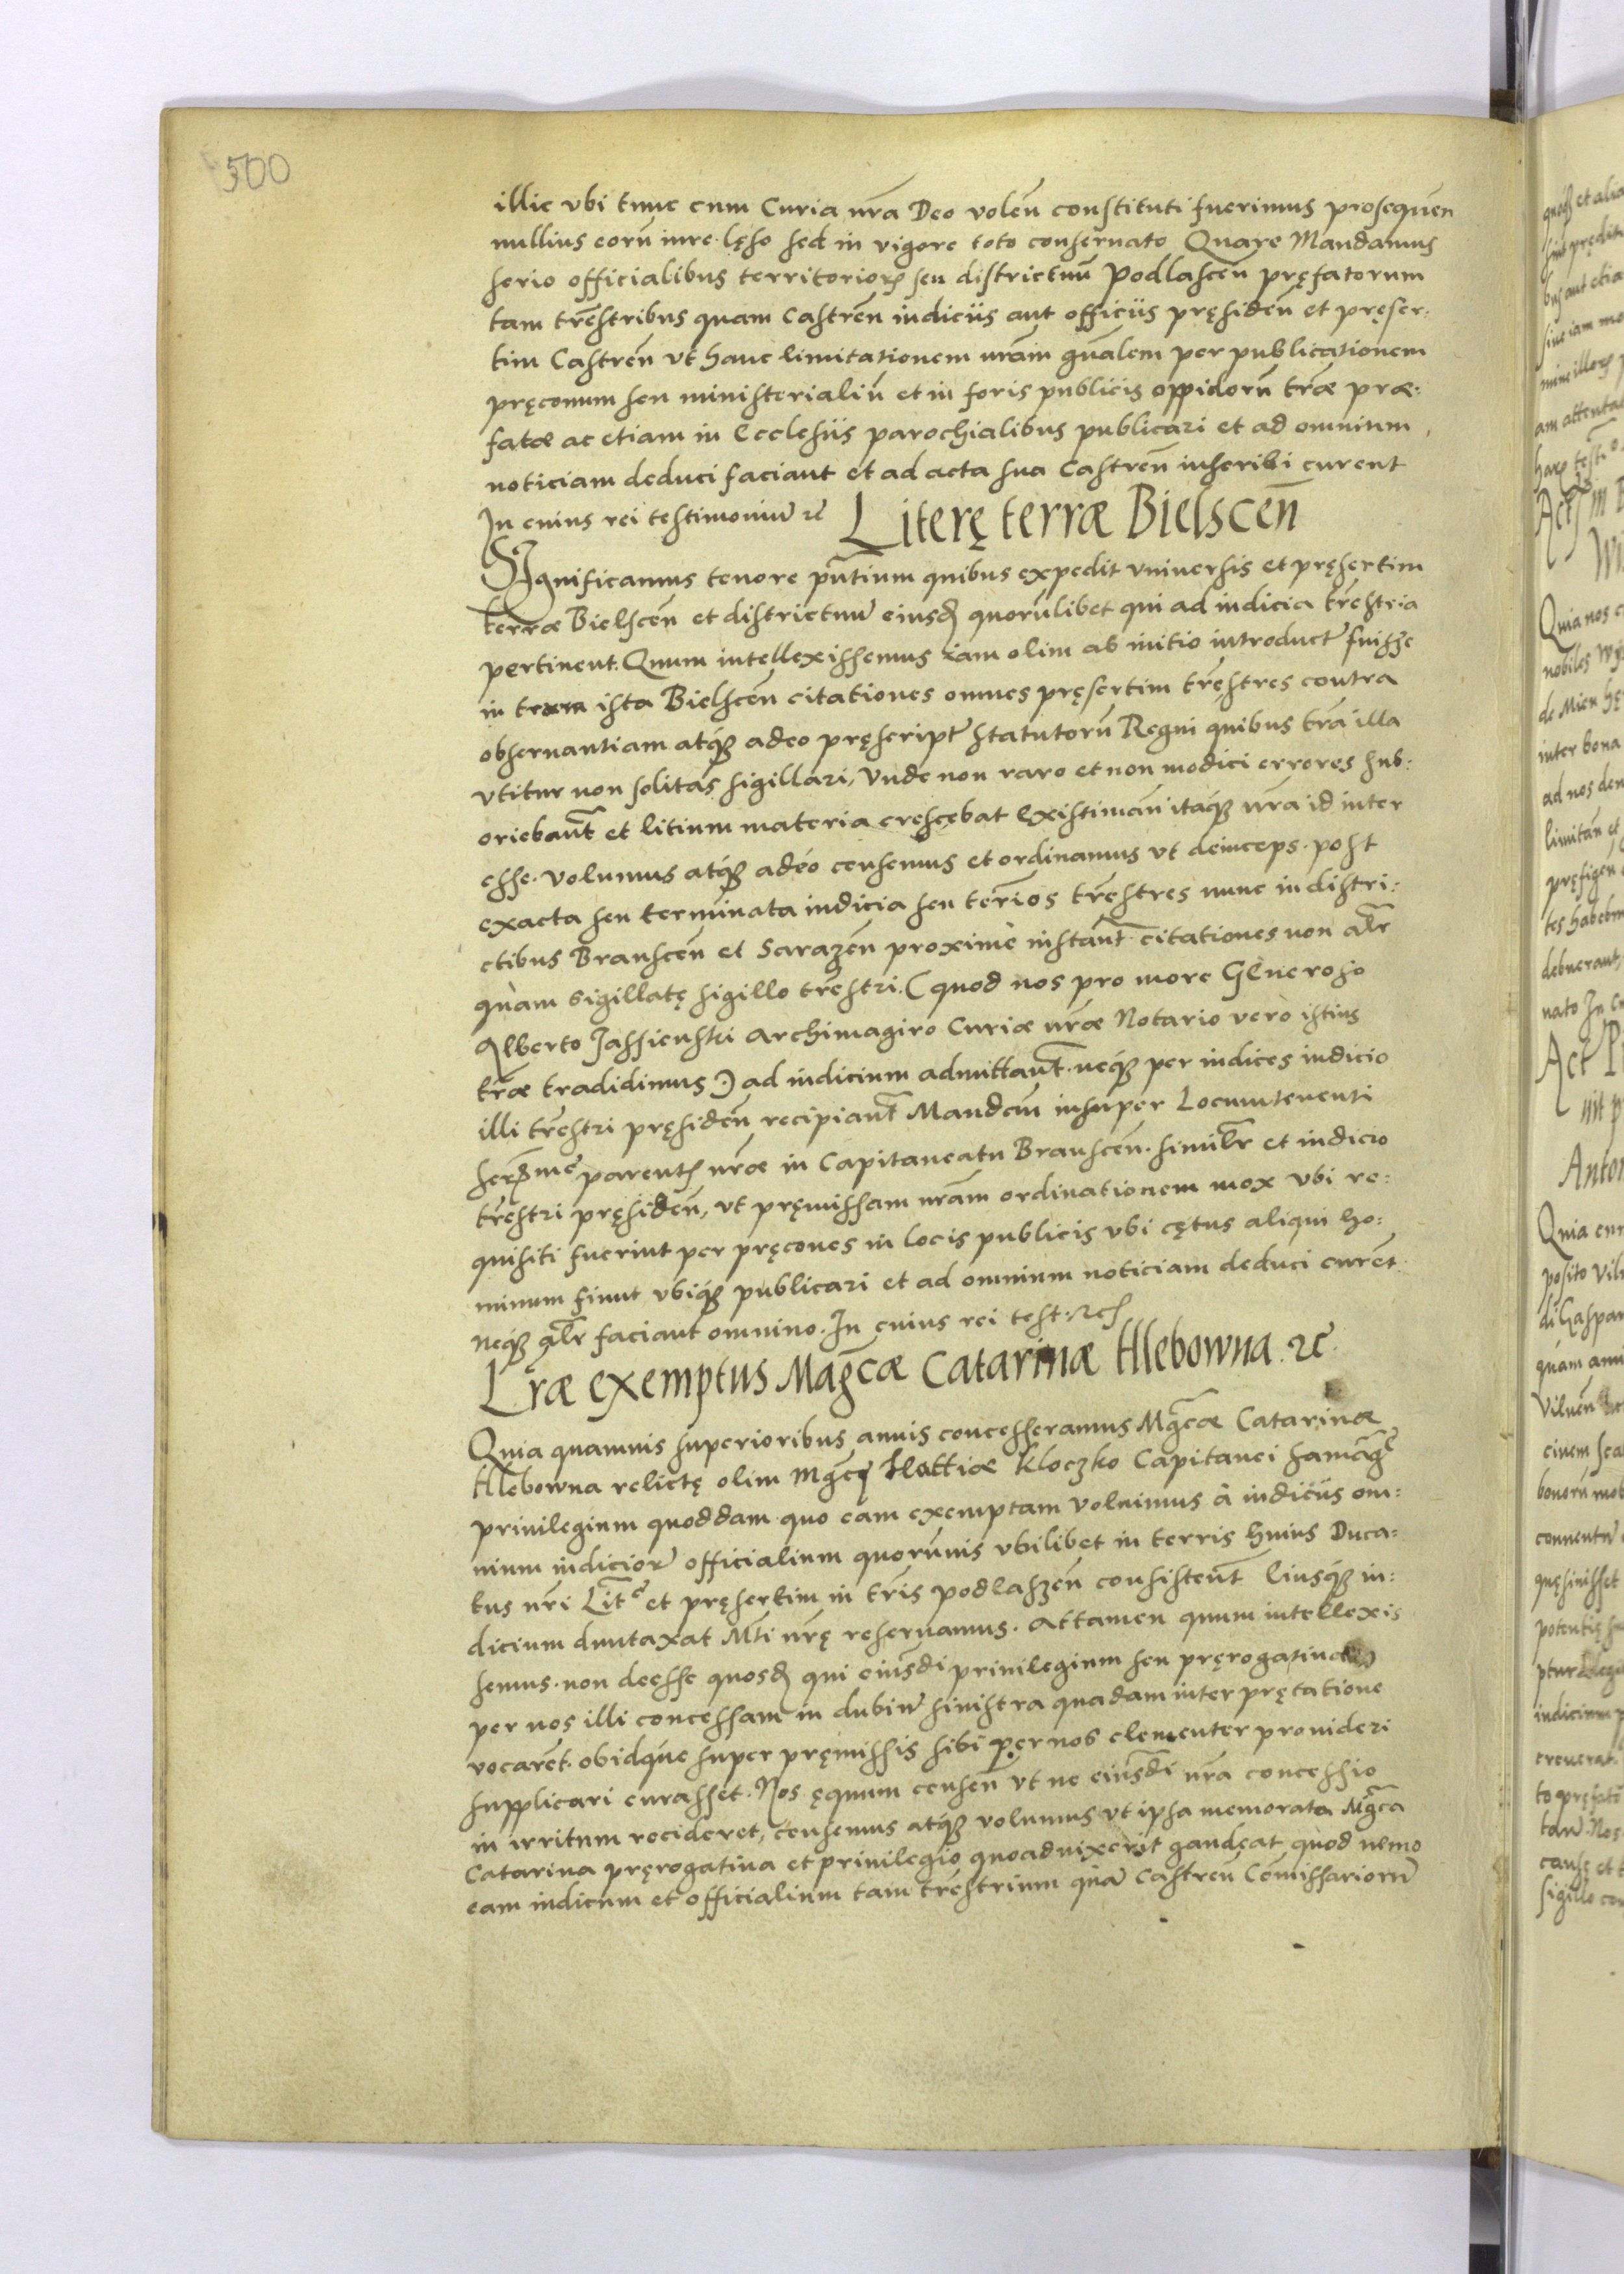 500
illic vbi tunc cum Curia nrã Deo voleñ constituti fuerimus prosequen
nullius eorũ iure lęso sed in vigore toto conseruato Quare Mandamus
serio officialibus territorioꝝ seu districtuũ Podlasceñ pręfatorum
tam trẽstribus quam Castreñ iudiciis aut officiis pręsideñ et pręser:
tim Castreñ vt hanc limitationem nrãm gnãlem per publicationem
pręconum seu ministerialiũ et in foris publicis oppidorũ trãe præ:
fatæ ac etiam in Ecclesiis parochialibus publicari et ad omnium
noticiam deduci faciant et ad acta sua Castreñ inscribi curent
In cuius rei testimoniũ ⁊c̃ Literę terræ Bielsceñ
Significamus tenore pñtium quibus expedit vniuersis et pręsertim
terræ Bielsceñ et districtuũ eiusđ quorũlibet qui ad iudicia trẽstria
pertinent. Quum intellexissemus iam olim ab initio introductũ fuisse
in terra ista Bielsceñ citationes omnes pręsertim trẽstres contra
obseruantiam atq́ꝫ adeo pręscriptũ statutorũ Regni quibus trã illa
vtitur non solitas sigillari, Vnde non raro et non modici errores sub:
oriebant̃ et litium materia crescebat Existimañ itaq́ꝫ nrã id inter
esse. volumus atq́ꝫ adeo censemus et ordinamus vt deinceps. post
exacta seu terminata iudicia seu terĩos trẽstres nunc in distri:
ctibus Bransceñ et Sarazeñ proxime instant̃ citationes non alr̃
quam sigillatę sigillo trẽstri. (quod nos pro more GEneroso
Alberto Jassienski Archimagiro Curiæ nrãe Notario vero istius
trãe tradidimus.) ad iudicium admittant̃. neq́ꝫ per iudices iudicio
illi trẽstri pręsideñ recipiant̃ Mandam̃ insuper Locumtenenti
serm̃e parentꝭ nrãe in Capitaneatu Bransceñ. similr̃ et iudicio
trẽstri pręsideñ, vt pręmissam nrãm ordinationem mox vbi re:
quisiti fuerint per pręcones in locis publicis vbi cętus aliqui ho:
minum fiunt vbiq́ꝫ publicari et ad omnium noticiam deduci curẽt
Neq́ꝫ alr̃ faciant omnino. In cuius rei test. ⁊cꝭ
Lrãe exemptus Mag̃cæ Catarinæ Hlebowna ⁊c̃
Quia quamuis superioribus annis concesseramus Mg̃cæ Catarinæ
Hlebowna relictę olim Mg̃cę Mattiæ Kloczko Capitanei
priuilegium quoddam quo eam exemptam voluimus à iudiciis om:
nium iudiciorũ officialium quorũuis vbilibet in terris huius Duca:
tus nrĩ Lit̃ę et pręsertim in trĩs podlaszeñ consistent̃ Eiusq́ꝫ iu:
dicium duntaxat Mti nrę̃ reseruamus. Attamen quum intellexis
semus. non deesse quosđ qui eiusdi priuilegium seu pręrogatiuam
per nos illi concessam in dubiũ sinistra quadam inter prętatione
vocarẽt. obidq́ue super pręmissis sibi per nos clementer prouideri
supplicari curasset. Nos ęquum censeñ vt ne eiusdi nrã concessio
in irritum recideret, censemus atq́ꝫ volumus vt ipsa memorata Mg̃ca
Catarina pręrogatiua et priuilegio quoaduixerit gaudeat quod nemo
eam iudicum et officialium tam trẽstrium quã Castreñ Comissariorũ